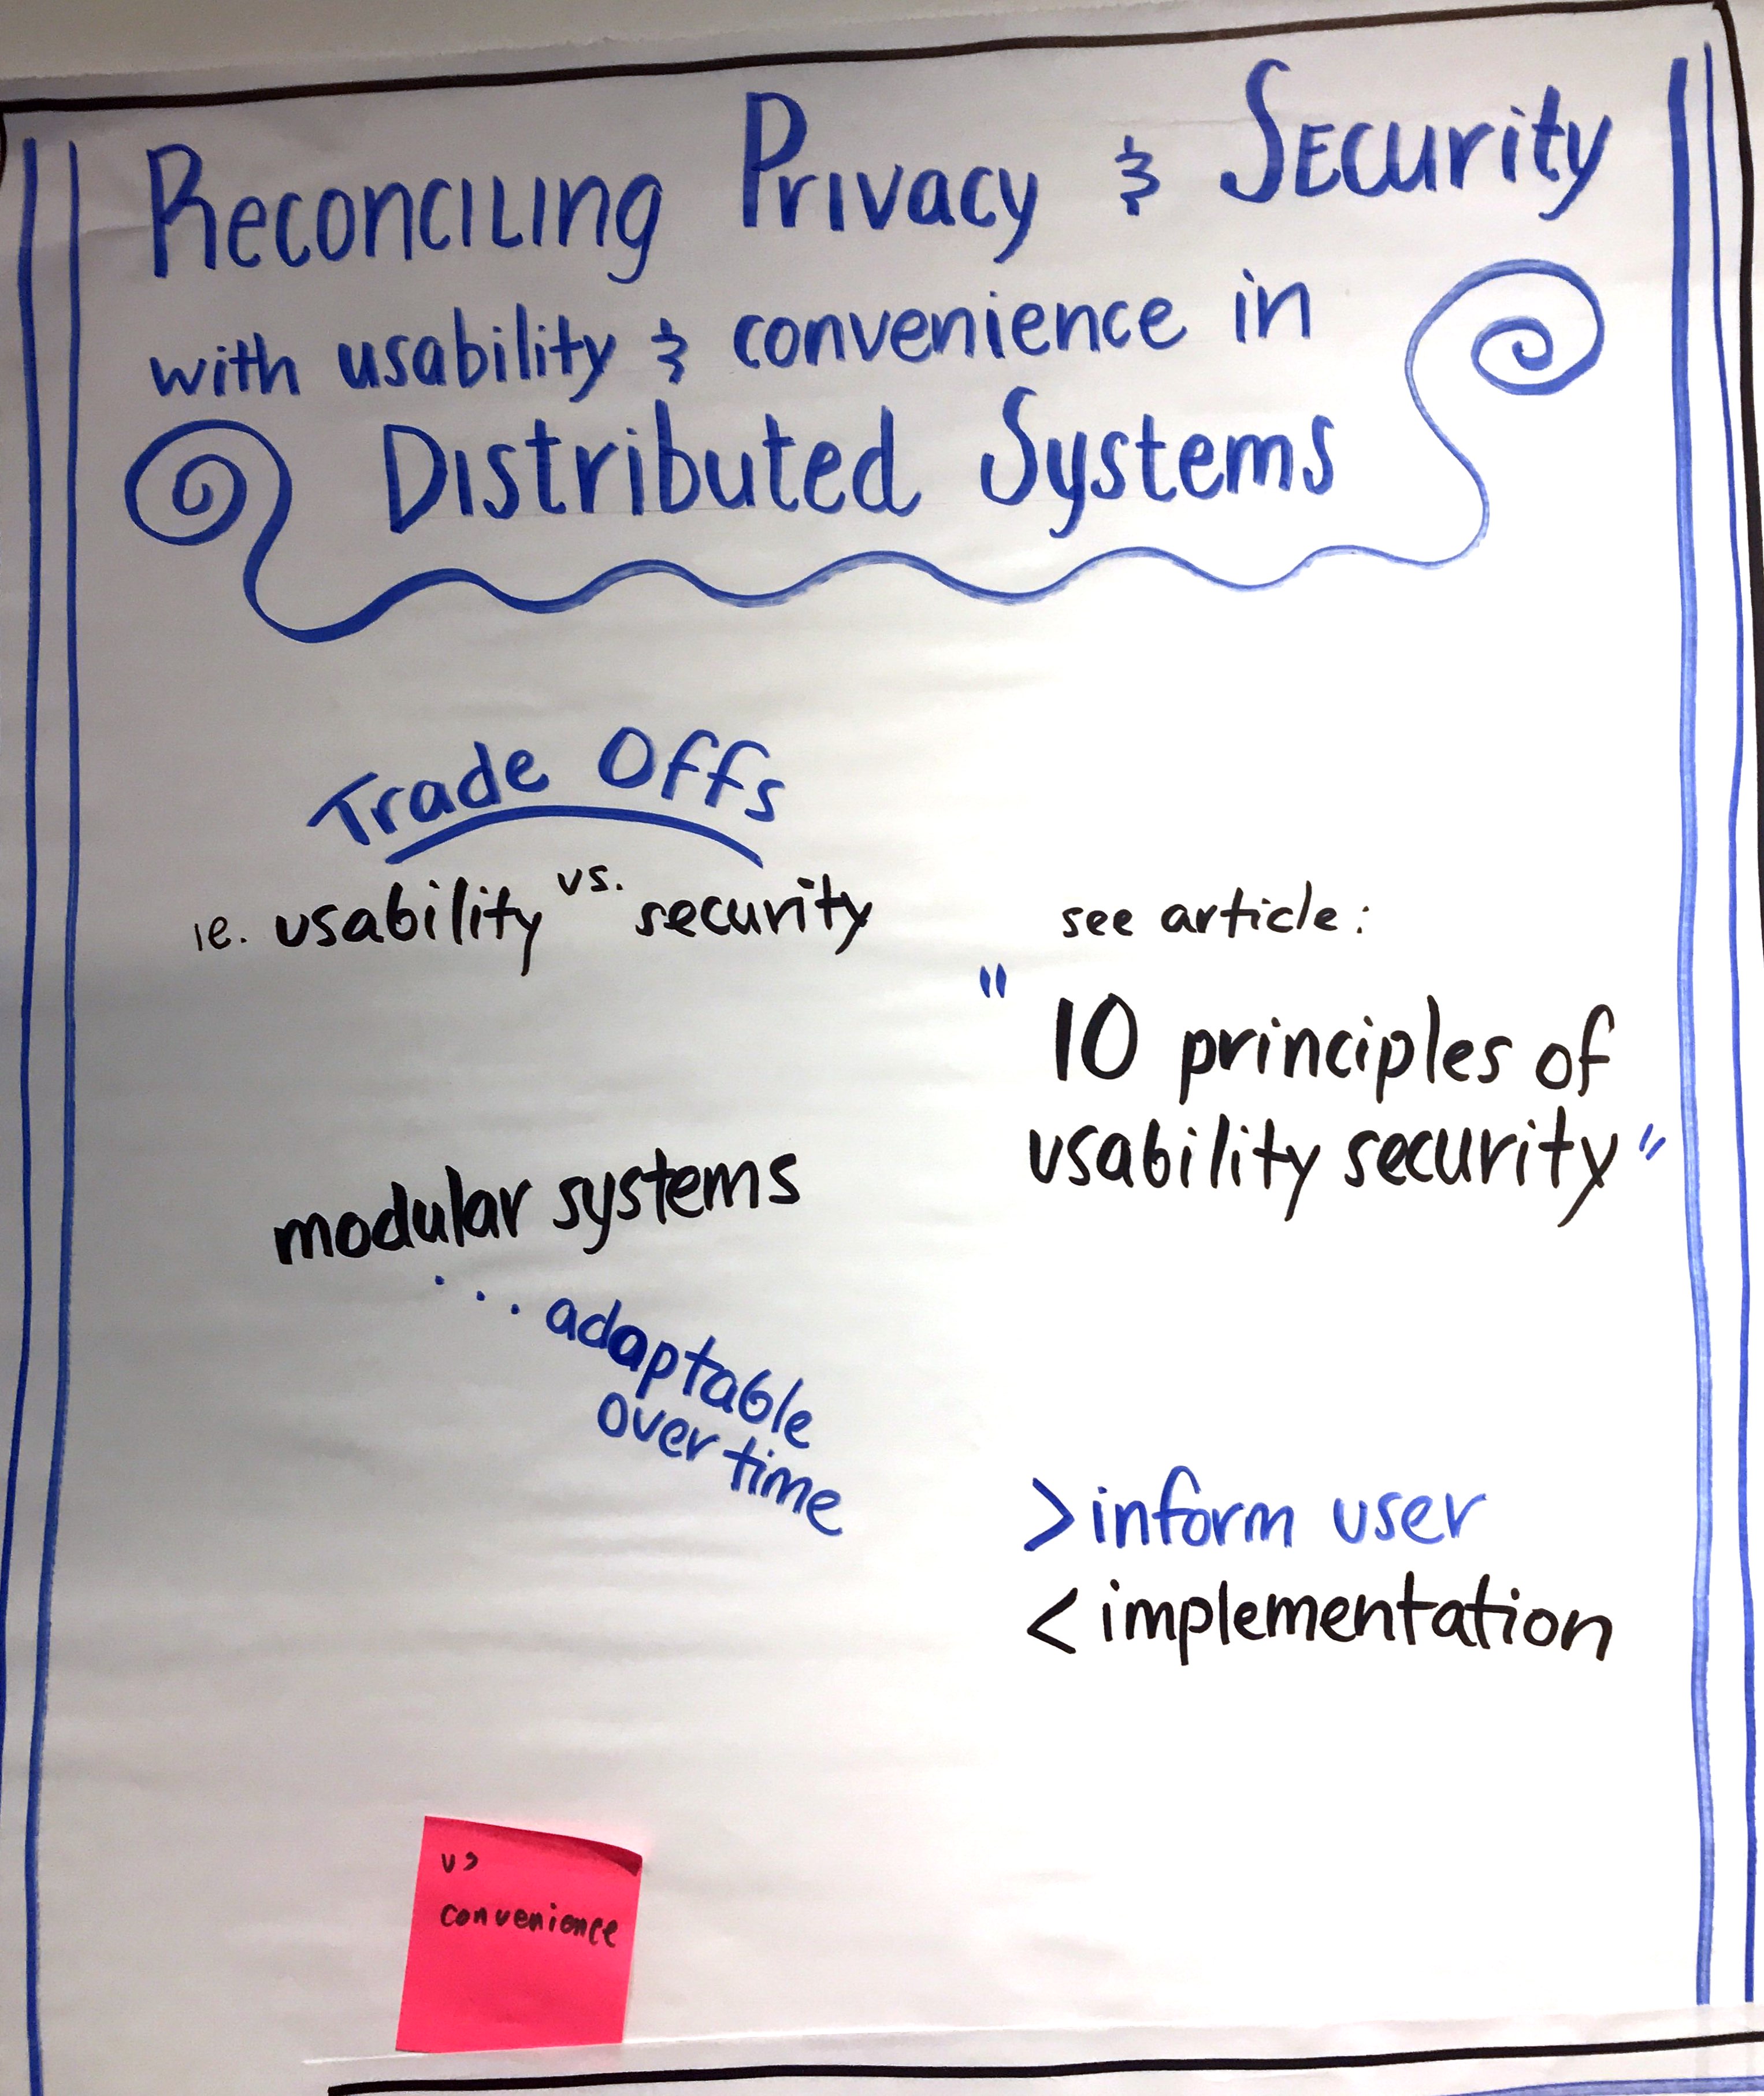 Reconciling Privacy & Security
with usability & convenience in
Distributed Systems
Trade Offs
ie. usability vs. security
modular systems
... adaptable
over time
see article:
"10 principles of
usability security"
> inform user
< implementation
convenience